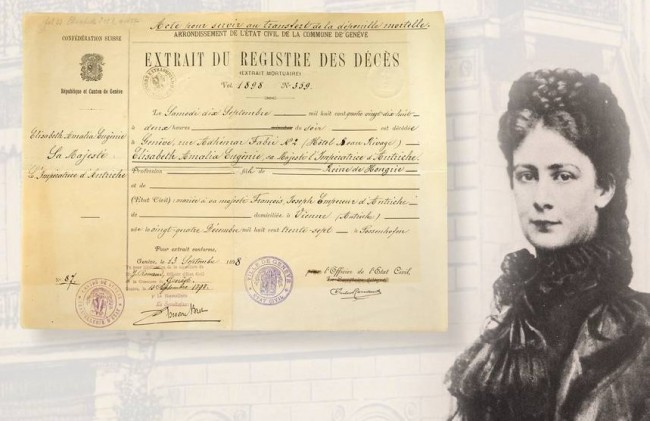 Acte pour servir au transfert de la dépouille mortelle.
ARRONDISSEMENT DE L'ÉTAT CIVIL DE LA COMMUNE DE GENÈVE
CONFÉDÉRATION SUISSE
EXTRAIT DU REGISTRE DES DÉCÈS
(EXTRAIT MORTUAIRE)
République et Canton de Genève
Vol. 1898 No. 559.
Le Samedi dix Septembre mil huit cent quatre vingt dix huit
à deux heures du soir est décédée
à Genève, rue Adhémar Fabri No 2 (Hôtel Beau Rivage)
Elisabeth Amalia Eugénie
Elisabeth Amalia Eugénie, sa Majesté l'Impératrice d'Autriche
Sa Majesté
Profession Reine de Hongrie
L'Impératrice d'Autriche
et de
(État Civil) mariée à sa majesté François Joseph Empereur d'Autriche
domiciliée à Vienne (Autriche)
née le vingt quatre Décembre mil huit cent trente sept à Possenhofen
Pour extrait conforme,
Genève, 13 Septembre 1898
L'Officier de l'État Civil
No 87
VILLE DE GENÈVE
ÉTAT CIVIL